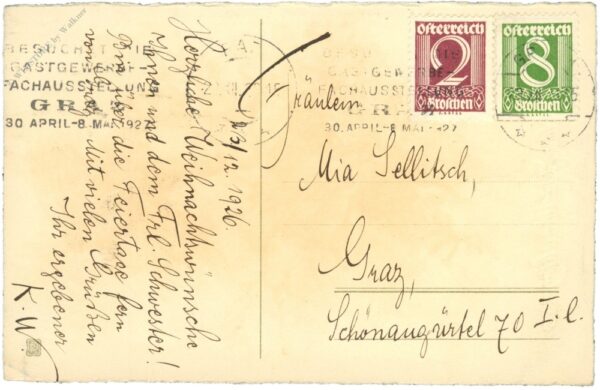 BESUCHET DIE
GASTGEWERBE
FACHAUSSTELLUNG
GRAZ
30. APRIL-8. MAI 1927
BESU
GASTGEWERBE
FACHAUSSTELLUNG
GRAZ
30. APRIL-8. MAI 1927
Österreich
2
Groschen
Österreich
8
Groschen
23/12. 1926.
Herzliche Weihnachtswünsche
Ihnen und dem Frl. Schwester!
Bin über die Feiertage fern
von Graz. Mit vielen Grüßen
Ihr ergebener
K. W.
Fräulein
Mia Sellitsch,
Graz,
Schönaugürtel 70 I. l.